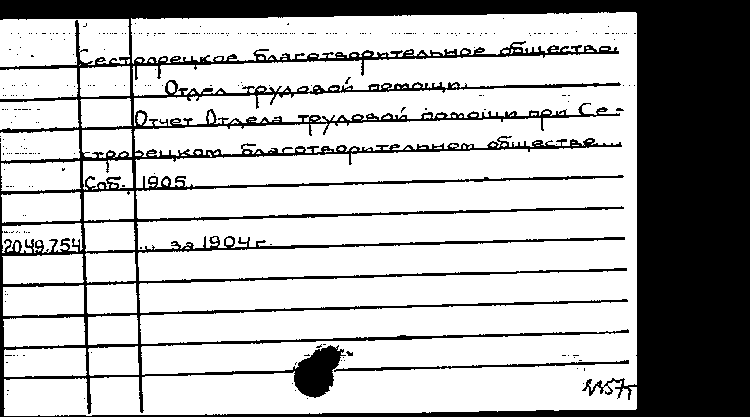 Сестрорецкое благотворительное общество.
Отдел трудовой помощи.
Отчет Отдела трудовой помощи при Се-
строрецком благотворительном обществе...
Спб. 1905.
20.49.7.54 ... за 1904 г.